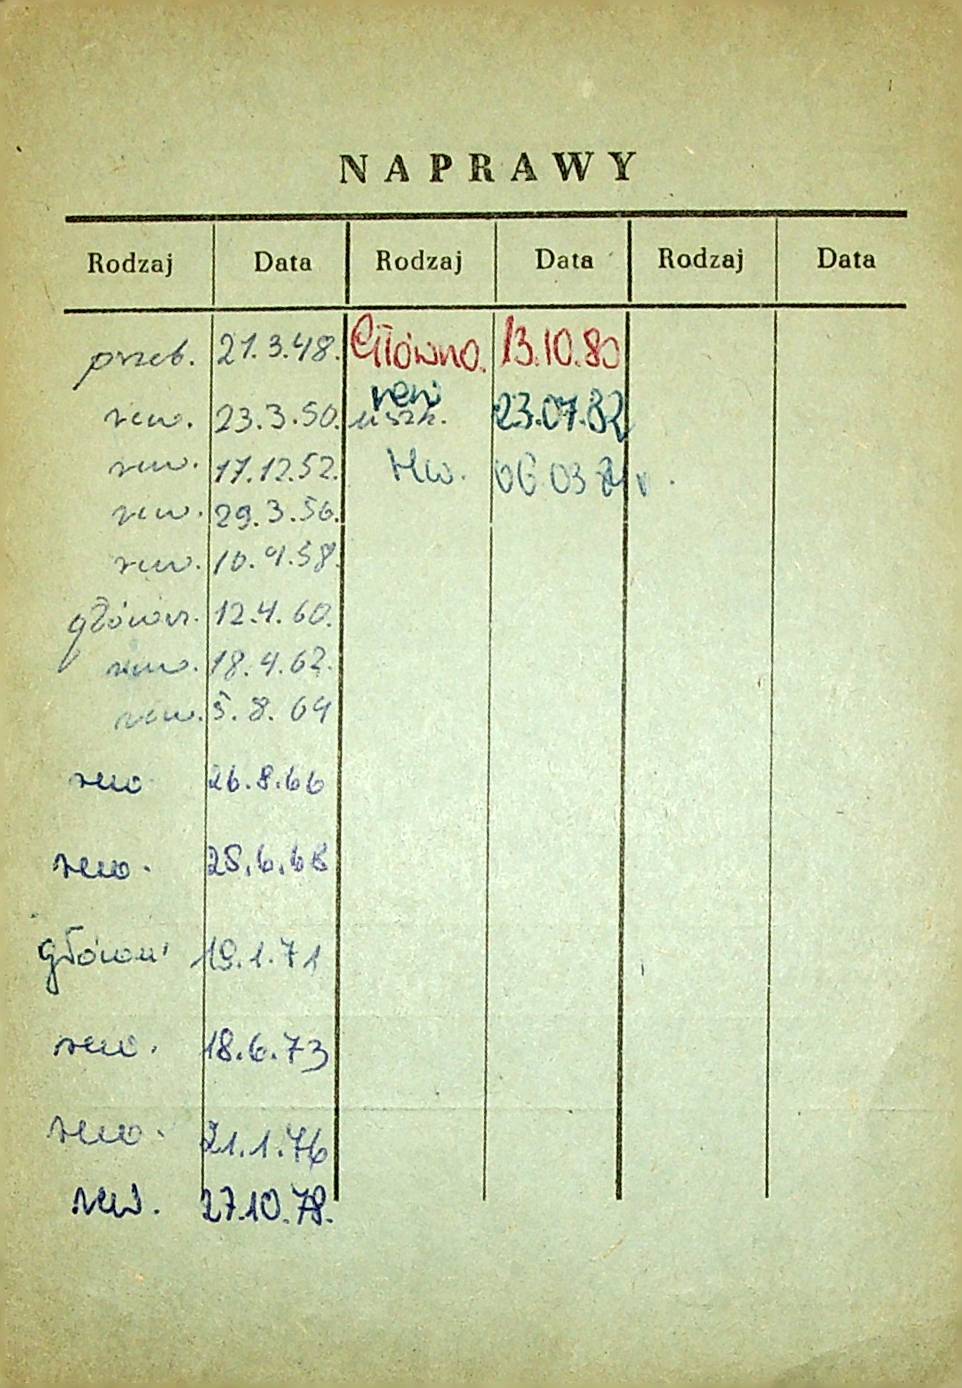 NAPRAWY
Rodzaj Data Rodzaj Data Rodzaj Data
przeb. 21.3.48. Główna. 13.10.80
rew. 23.3.50. rew uszk. 23.07.82
rew. 17.12.52. rew. 06 03
rew. 29.3.56.
rew. 10.4.58.
główn. 12.4.60.
rew. 18.4.62.
rew. 5.8.64
rew 26.8.66
rew. 28.6.68
główn 19.1.71
rew. 18.6.73
rew. 21.1.76
rew. 27.10.78.